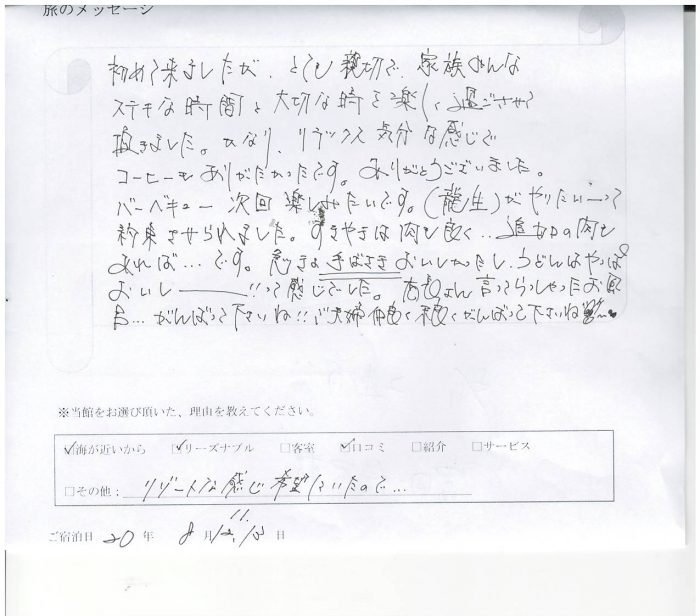 旅のメッセージ
初めて来ましたが、とても親切で、家族みんな
ステキな時間と大切な時を楽しく過ごさせて
頂きました。ひなり、リラックス気分な感じで
コーヒーもありがたかったです。ありがとうございました。
バーベキュー次回楽しみたいです。(龍生)がやりたいーって
約束させられました。すきやきは肉も良く…追加の肉も
あれば…です。手ばさきおいしかったし、うどんはやっぱ
おいしー!!って感じでした。言ってらっしゃったお
…がんばって下さいね!!ご夫婦仲良く末長くがんばって下さいね
※当館をお選び頂いた、理由を教えてください。
☑海が近いから ☑リーズナブル □客室 ☑口コミ □紹介 □サービス
□その他：リゾートな感じ希望していたので…
11.
ご宿泊日 20年 8月12.13日